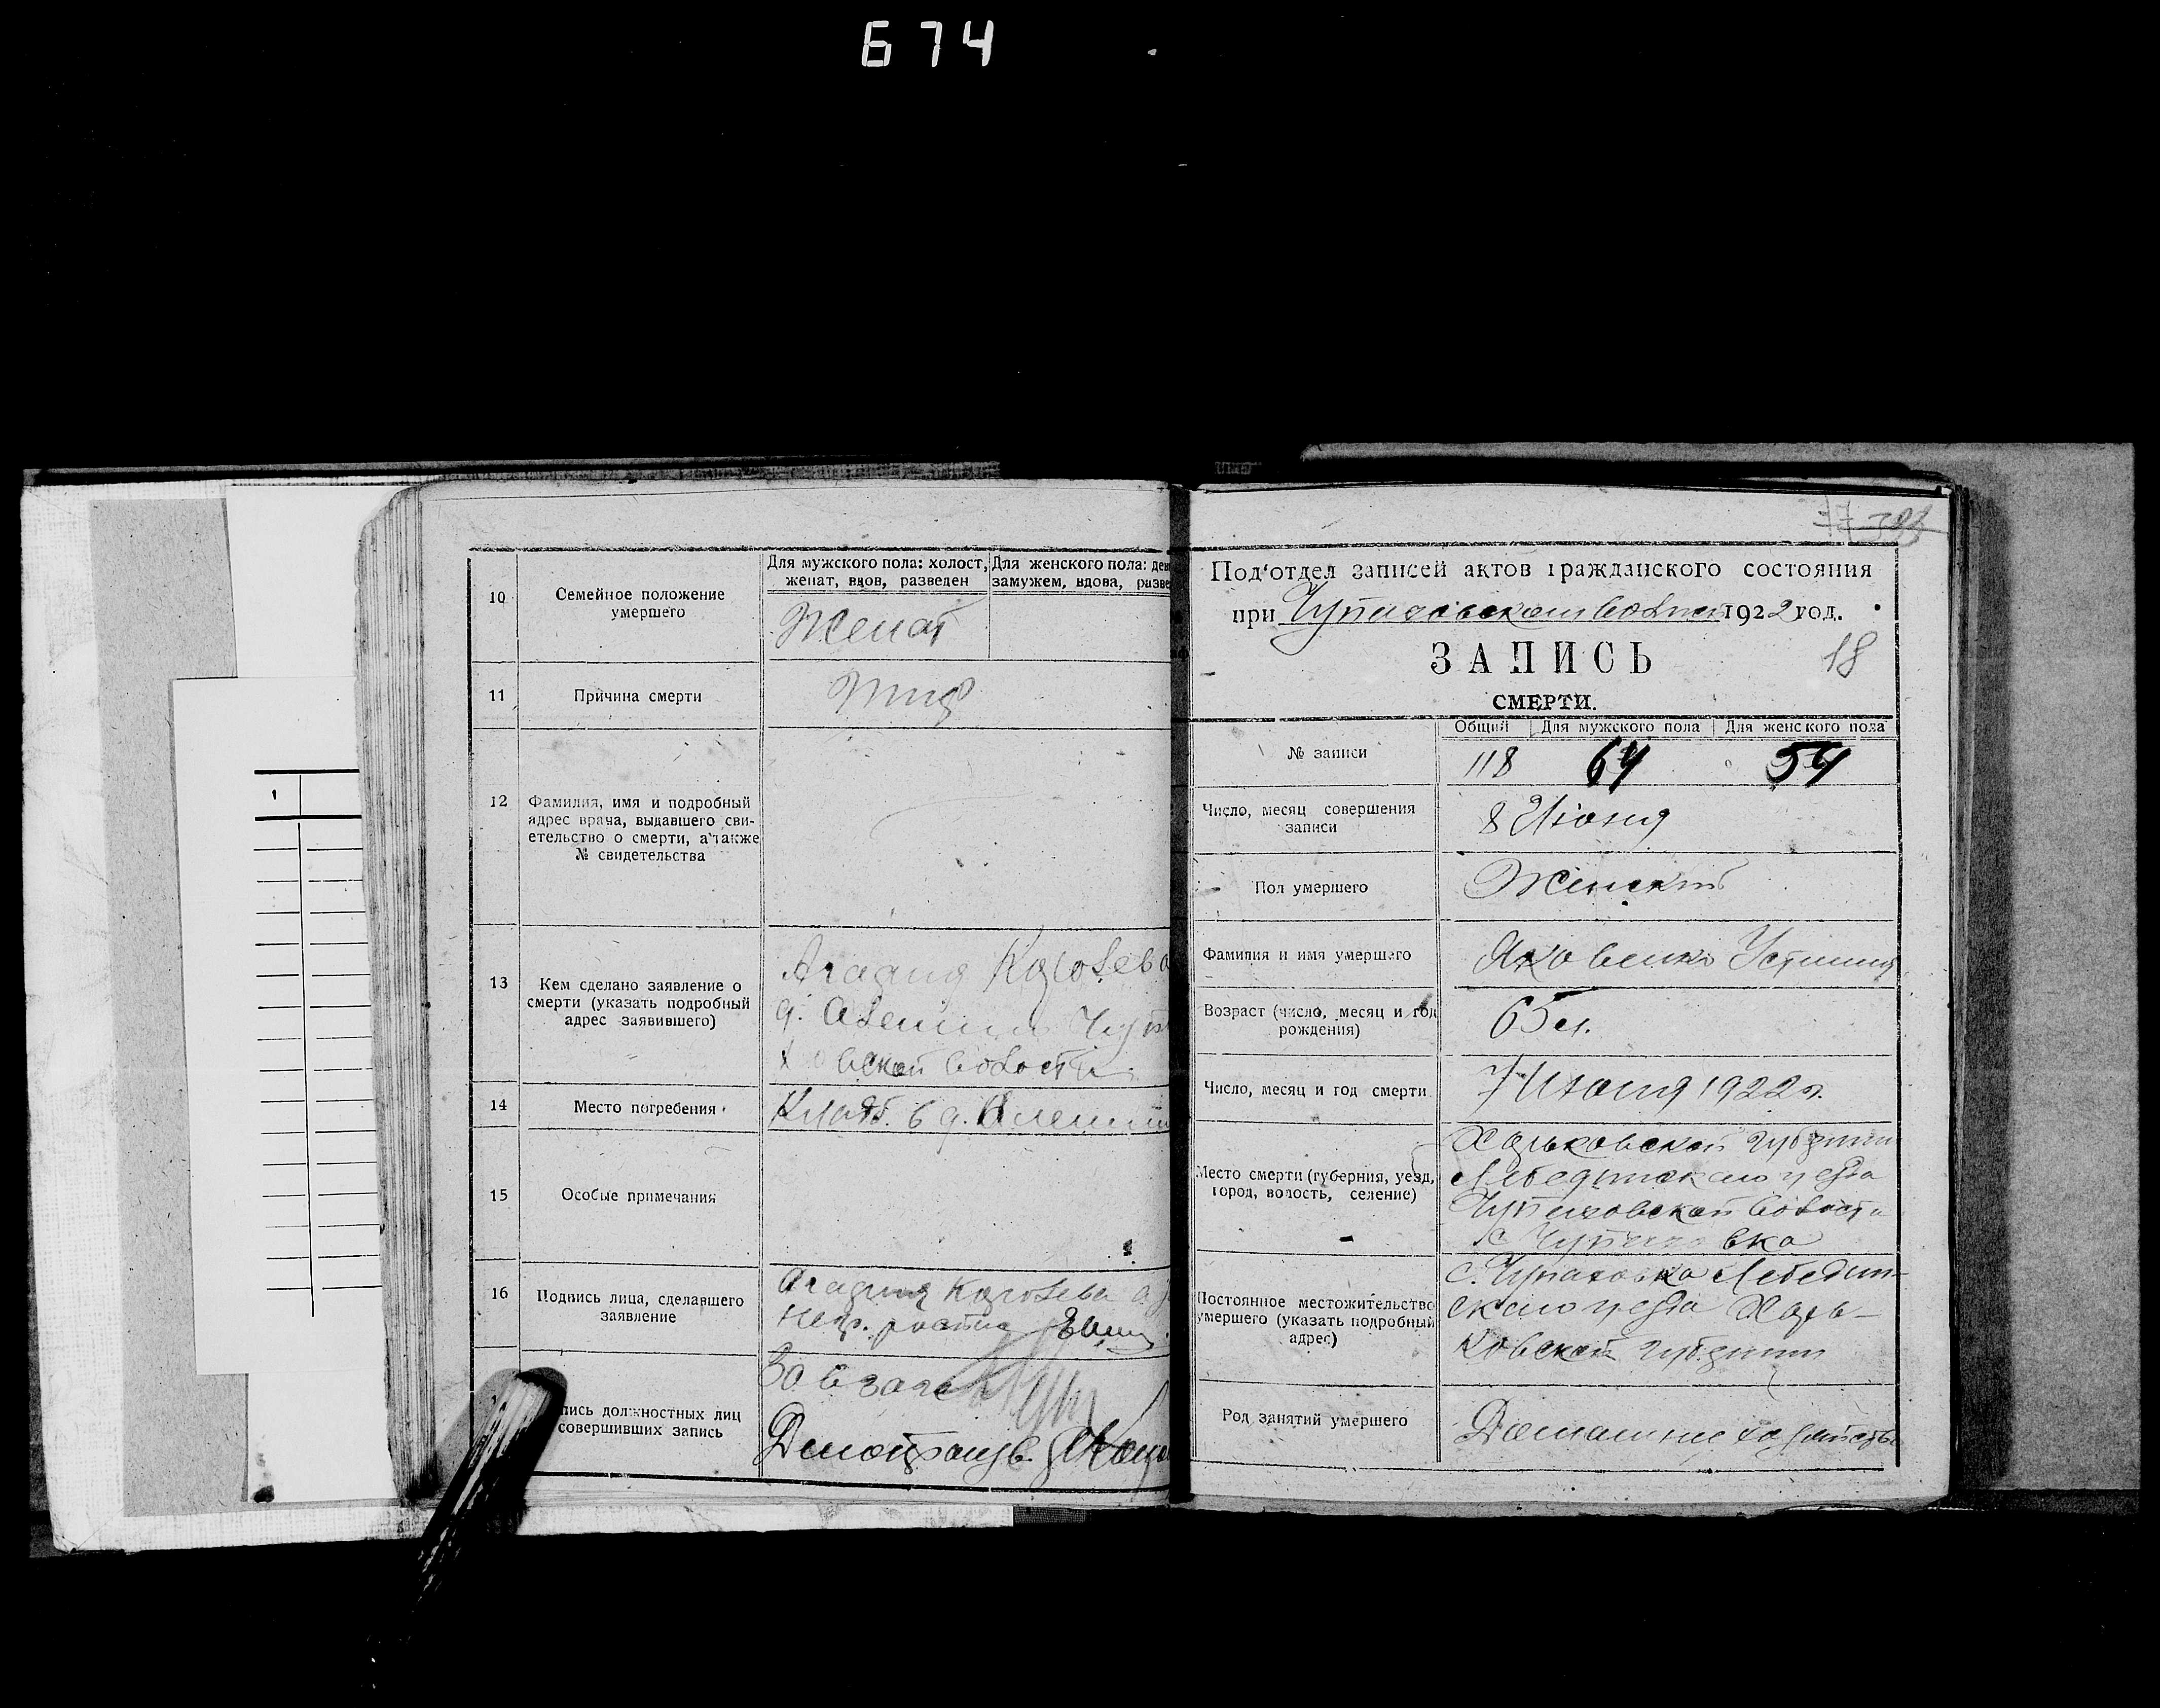 674
10
Семейное положение
умершего
Для мужского пола: холост,
женат, вдов, разведен
Для женского пола: дев
замужем, вдова, разве
Женат
11
Причина смерти
Тиф
12
Фамилия, имя и подробный
адрес врача, выдавшего сви-
етельство о смерти, а также
№ свидетельства
13
Кем сделано заявление о
смерти (указать подробный
адрес заявившего)
Агафия
д.
ховской волости
14
Место погребения
Кладб. в д.
15
Особые примечания
16
Подпись лица, сделавшего
заявление
Агафия
пись должностных лиц
совершивших запись
Зав. загс
Делопроизв.
18
Под'отдел записей актов гражданского состояния
при Чупаховском волисп 1922 год.
ЗАПИСЬ
СМЕРТИ.
№ записи
Общий
Для мужского пола
Для женского пола
118
64
54
Число, месяц совершения
записи
8 Июня
Пол умершего
Женский
Фамилия и имя умершего
Яковенко Устиния
Возраст (число, месяц и год
рождения)
65 л.
Число, месяц и год смерти
7 Июня 1922 г.
Место смерти (губерния, уезд,
город, волость, селение)
Харьковской губернии
Лебединского уезда
Чупаховской волости
с. Чупаховка
Постоянное местожительство
умершего (указать подробный
адрес)
с. Чупаховка Лебедин-
ского уезда Харь-
ковской губернии
Род занятий умершего
Домашнее хозяйство